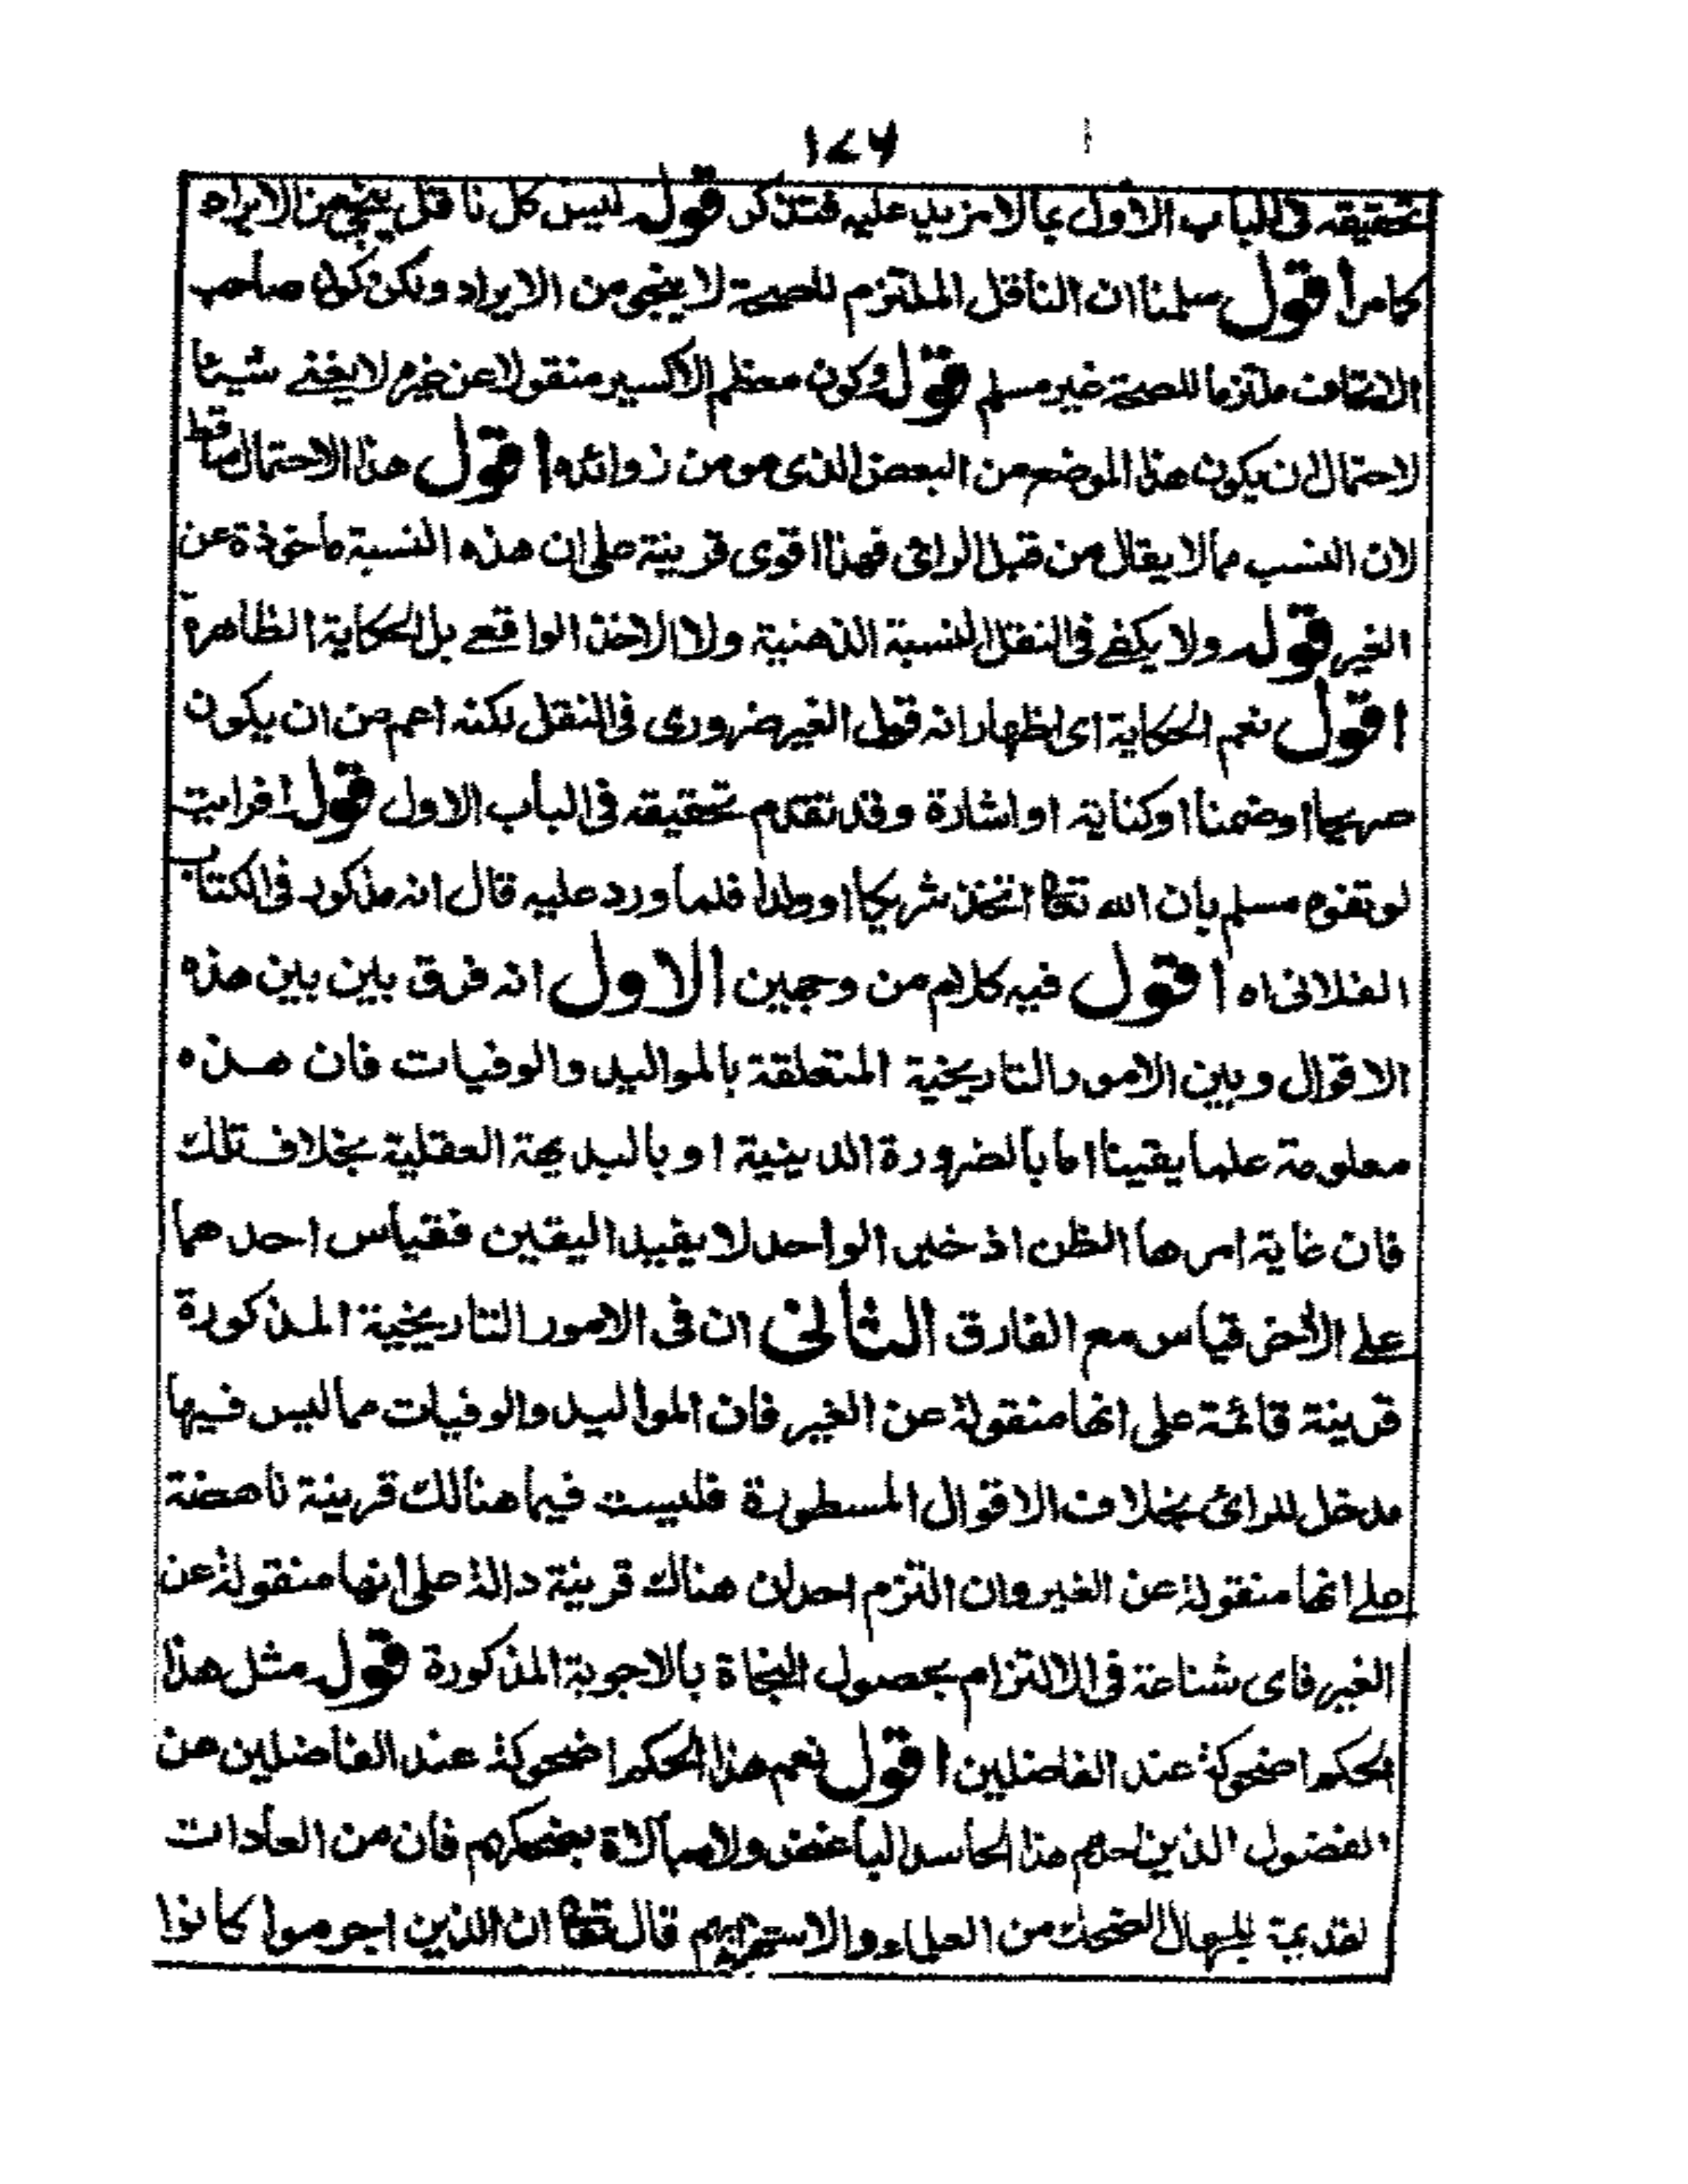 ١٧٦
تحقيقه فى الباب الاول بما لا مزيد عليه فتذكر قوله ليس كل ناقل ينجى من الايراد
كامر اقول سلمنا ان الناقل الملتزم للصحة لا ينجى من الايراد ولكن كون صاحب
الاتحاف ملتزما للصحة غير مسلم قوله وكون معظم الاكسير منقولا عن غيره لا يغنے شيئا
لاحتمال ان يكون هذا الموضع من البعض الذى هو من زوائده اقول هذا الاحتمال ساقط
لان النسب مما لا يقال من قبل الرائى فهذا اقوى قرينة على ان هذه النسبة مأخوذة عن
الغير قوله ولا يكفے فى النقل النسبة الذهنية ولا الاخذ الواقعے بل الحكاية الظاهرة
اقول نعم الحكاية اى اظهار انه قول الغير ضرورى فى النقل لكنه اعم من ان يكون
صريحا او ضمنا او كناية او اشارة وقد تقدم تحقيقه فى الباب الاول قوله افرايت
لو تفوه مسلم بان الله تعا اتخذ شريكا او ولدا فلما ورد عليه قال انه مذكور فى الكتاب
الفلانى اه اقول فيه كلام من وجهين الاول انه فرق بين بين هذه
الاقوال وبين الامور التاريخية المتعلقة بالمواليد والوفيات فان هذه
معلومة علما يقينا اما بالضرورة الدينية او بالبديهة العقلية بخلاف تلك
فان غاية امرها الظن اذ خبر الواحد لا يفيد اليقين فقياس احدهما
علے الأخر قياس مع الفارق الثانى ان فى الامور التاريخية المذكورة
قرينة قائمة على انها منقولة عن الغير فان المواليد والوفيات مما ليس فيها
مدخل للرائى بخلاف الاقوال المسطورة فليست فيما هنالك قرينة ناهضة
علے انها منقولة عن الغير وان التزم احد ان هناك قرينة دالة على انها منقولة عن
الغير فاى شناعة فى الالتزام بحصول النجاة بالاجوبة المذكورة قوله مثل هذا
الحكم اضحوكة عند الفاضلين اقول نعم هذا الحكم اضحوكة عند الفاضلين من
الفضول الذين هذا الحاسد الباغض ولا مبالاة بضحكهم فان من العادات
القديمة للجهال الضحك من العلماء والاستهزاء بهم قال تعا ان الذين اجرموا كانوا